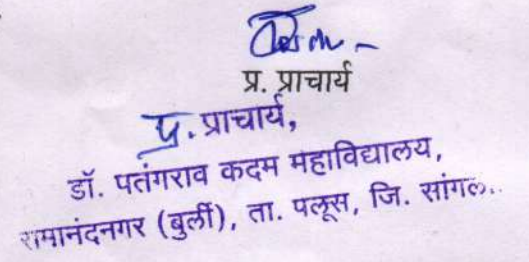 प्र. प्राचार्य
प्र. प्राचार्य,
डॉ. पतंगराव कदम महाविद्यालय,
रामानंदनगर (बुर्ली), ता. पलूस, जि. सांगल..